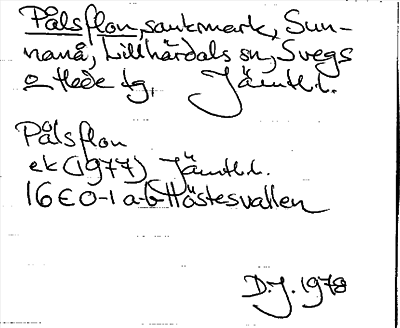 Pålsflon, sankmark, Sun-
nanå, Lillhärdals sn, Svegs
o Hede tg, Jämtl. l.
Pålsflon
ek (1977) Jämtl. l.
16E0-1 a-b Höstesvallen
D.J. 1978